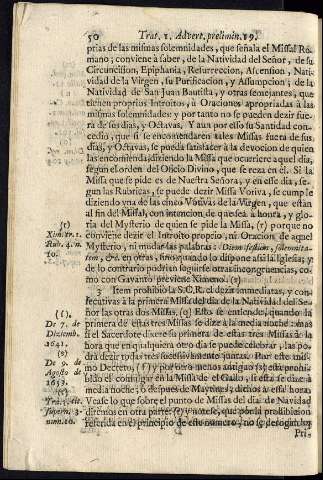 50 Trat. 1. Advert. prelimin. 19.
prias de las mismas solemnidades, que señala el Missal Ro-
mano; conviene à saber, de la Natividad del Señor, de su
Circuncision, Epiphania, Resurreccion, Ascension, Nati-
vidad de la Virgen, su Purificacion, y Assumpcion; de la
Natividad de San Juan Bautista, y otras semejantes, que
tienen proprios Introitos, ù Oraciones apropriadas à las
mismas solemnidades: y por tanto no se pueden dezir fue-
ra de sus dias, y Octavas. Y aun por esso su Santidad con-
cedió, que si se encomendaren tales Missas fuera de sus
dias, y Octavas, se pueda satisfacer à la devocion de quien
las encomienda, diziendo la Missa que ocurriere aquel dia,
segun el orden del Oficio Divino, que se reza en èl. Si la
Missa que se pide es de Nuestra Señora, y en esse dia, se-
gun las Rubricas, se puede dezir Missa Votiva, se cumple
diziendo vna de las cinco Votivas de la Virgen, que estàn
al fin del Missal, con intencion de que sea à honra, y glo-
ria del Mysterio de quien se pide la Missa, (r) porque no
conviene dezir el Introito proprio, ni Oracion de aquel
Mysterio, ni mudar las palabras: Diem festum, solemnita-
tem, &c. en otras, sino quando lo dispone assi la Iglesia; y
de lo contrario podrian seguirse otras incongruencias, co-
mo con Gavanto previene Ximeno.
3 Item prohibiò la S.C.R. el dezir immediatas, y con-
secutivas à la primera Missa del dia de la Natividad del Se-
ñor las otras dos Missas, Esto se entiende, quando la
primera de estas tres Missas se dize à la media noche: mas
si el Sacerdote dixere la primera de estas tres Missas à la
hora que en qualquiera otro dia se puede celebrar, las po-
drà dezir todas tres sucesivamente juntas. Por este mis-
mo Decreto, y por otro menos antiguo està prohi-
bido el comulgar en la Missa del Gallo, si esta se dize à
media noche; ò despues de Maytines; dichos à essa hora.
Vease lo que sobre el punto de Missas del dia de Navidad
diremos en otra parte: (t) y notese, que por la prohibicion
referida en el principio de este numero no se derogan los
Pri-
(r)
Xim. tr. 1.
Rub. 4. n.
10.
De 7. de
Diciemb.
1641.
De 9. de
Agosto de
1653.